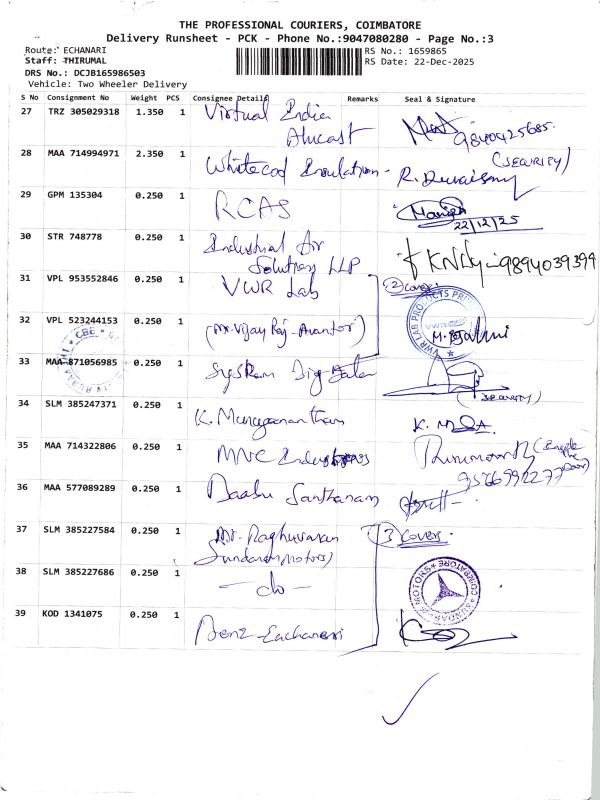 THE PROFESSIONAL COURIERS, COIMBATORE
Delivery Runsheet - PCK - Phone No.:9047080280 - Page No.:3
Route: ECHANARI
RS No.: 1659865
Staff: THIRUMAL
RS Date: 22-Dec-2025
DRS No.: DCJB165986503
Vehicle: Two Wheeler Delivery
S No Consignment No Weight PCS Consignee Details Remarks Seal & Signature
27 TRZ 305029318 1.350 1 Virtual India
28 MAA 714994971 2.350 1 (SECURITY)
29 GPM 135304 0.250 1 RCAS Manish
22/12/25
30 STR 748778 0.250 1 Industrial Air
Solutions LLP 9894039399
31 VPL 953552846 0.250 1 VWR Lab (2) Covers
32 VPL 523244153 0.250 1 (Mr. Vijay Raj - Avantor)
VWR LAB PRODUCTS
CBE
33 MAA 871056985 0.250 1
(SECURITY)
34 SLM 385247371 0.250 1 K. Muruganantham
35 MAA 714322806 0.250 1 MNC Industries
36 MAA 577089289 0.250 1 Santhanam
37 SLM 385227584 0.250 1 Mr. Raghuraman (3) Covers
Sundaram Motors)
38 SLM 385227686 0.250 1 - do -
SUNDARAM MOTORS * COIMBATORE *
39 KOD 1341075 0.250 1 Benz - Eachanari